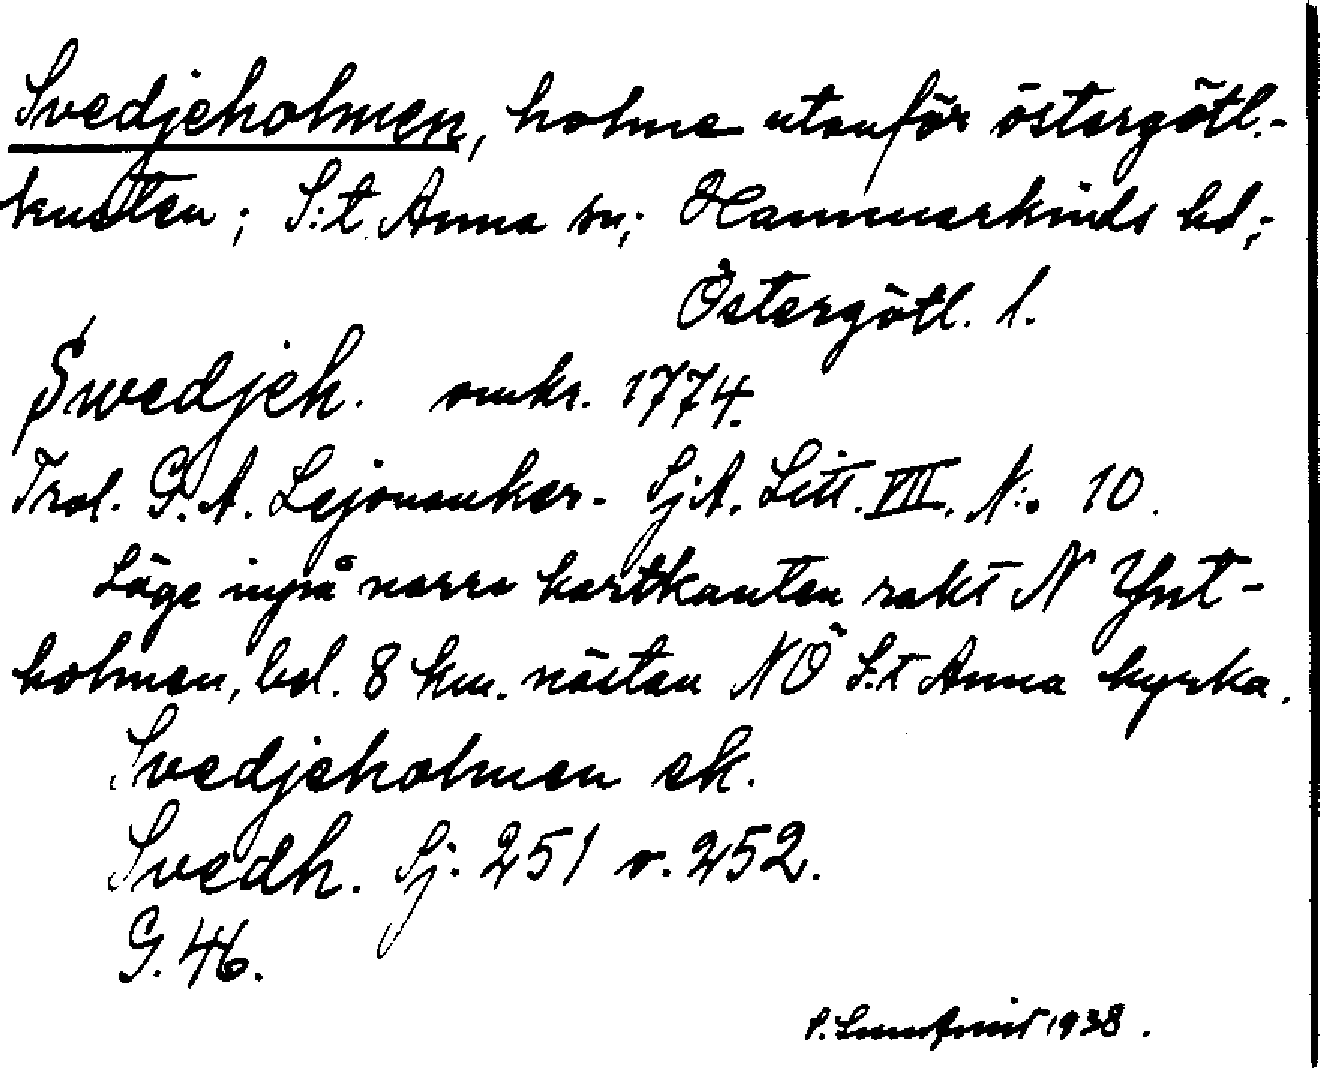 Svedjeholmen, holme utanför östergötl.-
kusten; S:t Anna sn; Hammarkinds hd;
Östergötl. l.
Swedjeh. omkr. 1774.
Trol. G. A. Lejonanker. SjA. Litt. VIII. N:o 10.
Läge inpå norra kartkanten rakt N Ynt-
holmen, bel. 8 km. nästan NÖ S:t Anna kyrka.
Svedjeholmen ek.
Svedh. Sj. 251 o. 252.
G. 46.
1938.